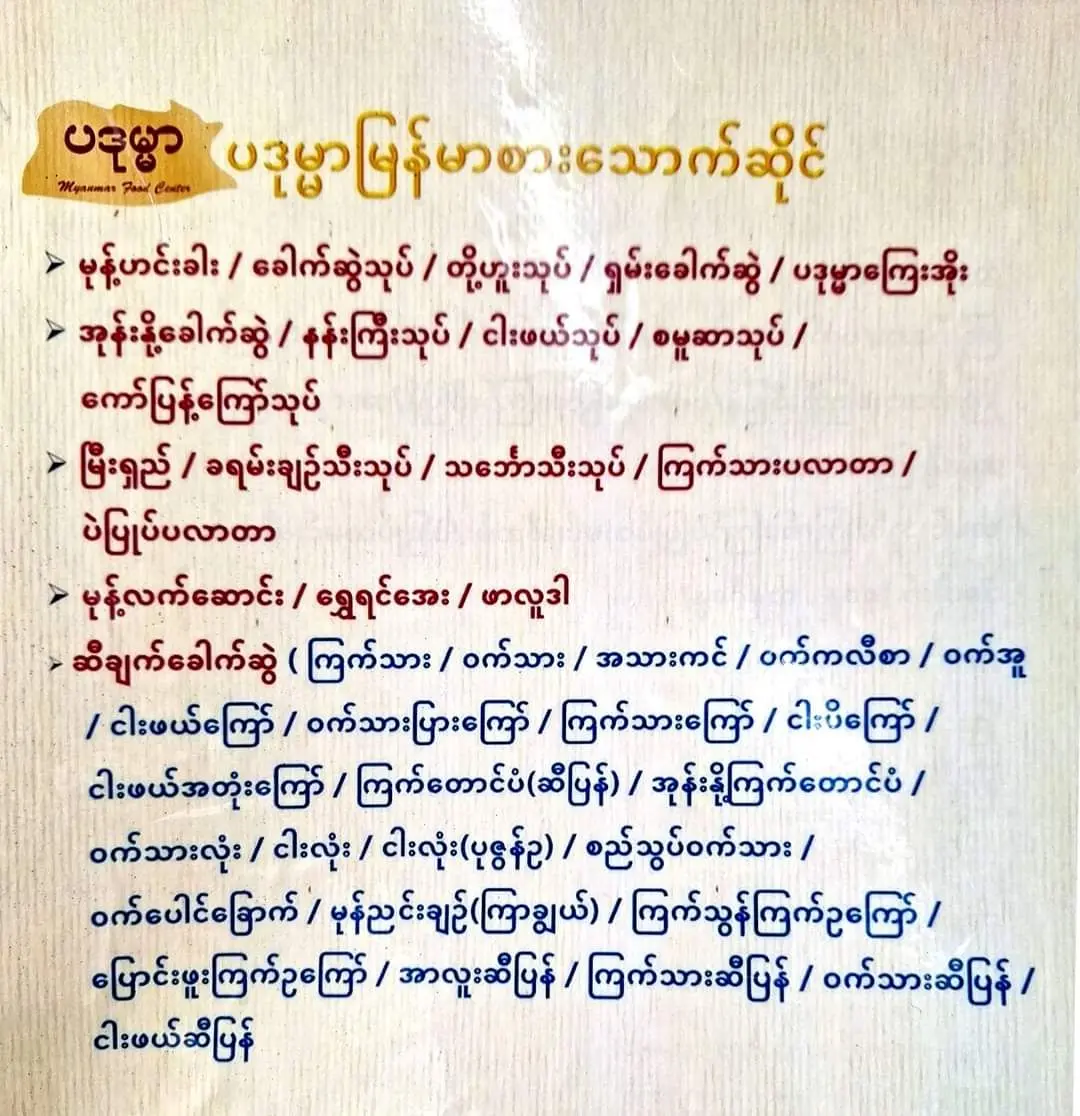 ပဒုမ္မာ
Myanmar Food Center
ပဒုမ္မာမြန်မာစားသောက်ဆိုင်
➢ မုန့်ဟင်းခါး / ခေါက်ဆွဲသုပ် / တို့ဟူးသုပ် / ရှမ်းခေါက်ဆွဲ / ပဒုမ္မာကြေးအိုး
➢ အုန်းနို့ခေါက်ဆွဲ / နန်းကြီးသုပ် / ငါးဖယ်သုပ် / စမူဆာသုပ် /
ကော်ပြန့်ကြော်သုပ်
➢ မြီးရှည် / ခရမ်းချဉ်သီးသုပ် / သင်္ဘောသီးသုပ် / ကြက်သားပလာတာ /
ပဲပြုပ်ပလာတာ
➢ မုန့်လက်ဆောင်း / ရွှေရင်အေး / ဖာလူဒါ
➢ ဆီချက်ခေါက်ဆွဲ ( ကြက်သား / ဝက်သား / အသားကင် / ဝက်ကလီစာ / ဝက်အူ
/ ငါးဖယ်ကြော် / ဝက်သားပြားကြော် / ကြက်သားကြော် / ငါးပိကြော် /
ငါးဖယ်အတုံးကြော် / ကြက်တောင်ပံ(ဆီပြန်) / အုန်းနို့ကြက်တောင်ပံ /
ဝက်သားလုံး / ငါးလုံး / ငါးလုံး(ပုဇွန်ဥ) / စည်သွပ်ဝက်သား /
ဝက်ပေါင်ခြောက် / မုန်ညင်းချဉ်(ကြာချွယ်) / ကြက်သွန်ကြက်ဥကြော် /
ပြောင်းဖူးကြက်ဥကြော် / အာလူးဆီပြန် / ကြက်သားဆီပြန် / ဝက်သားဆီပြန် /
ငါးဖယ်ဆီပြန်